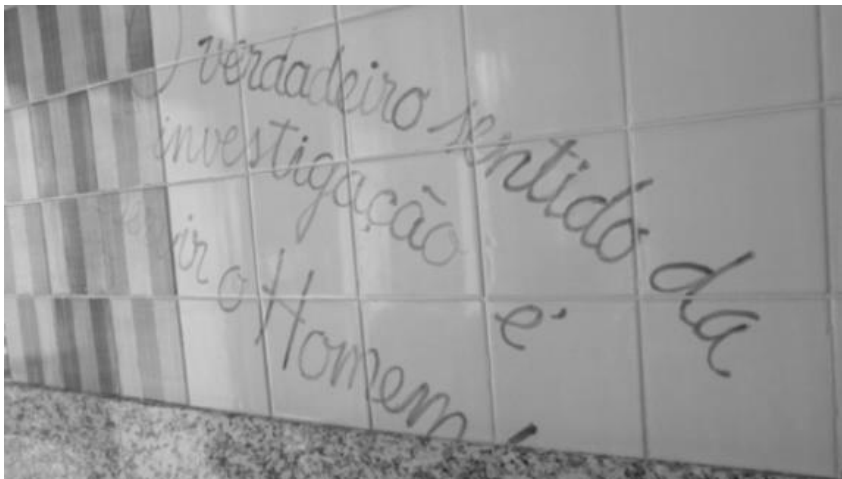 O verdadeiro sentido da
investigação é
servir o Homem!